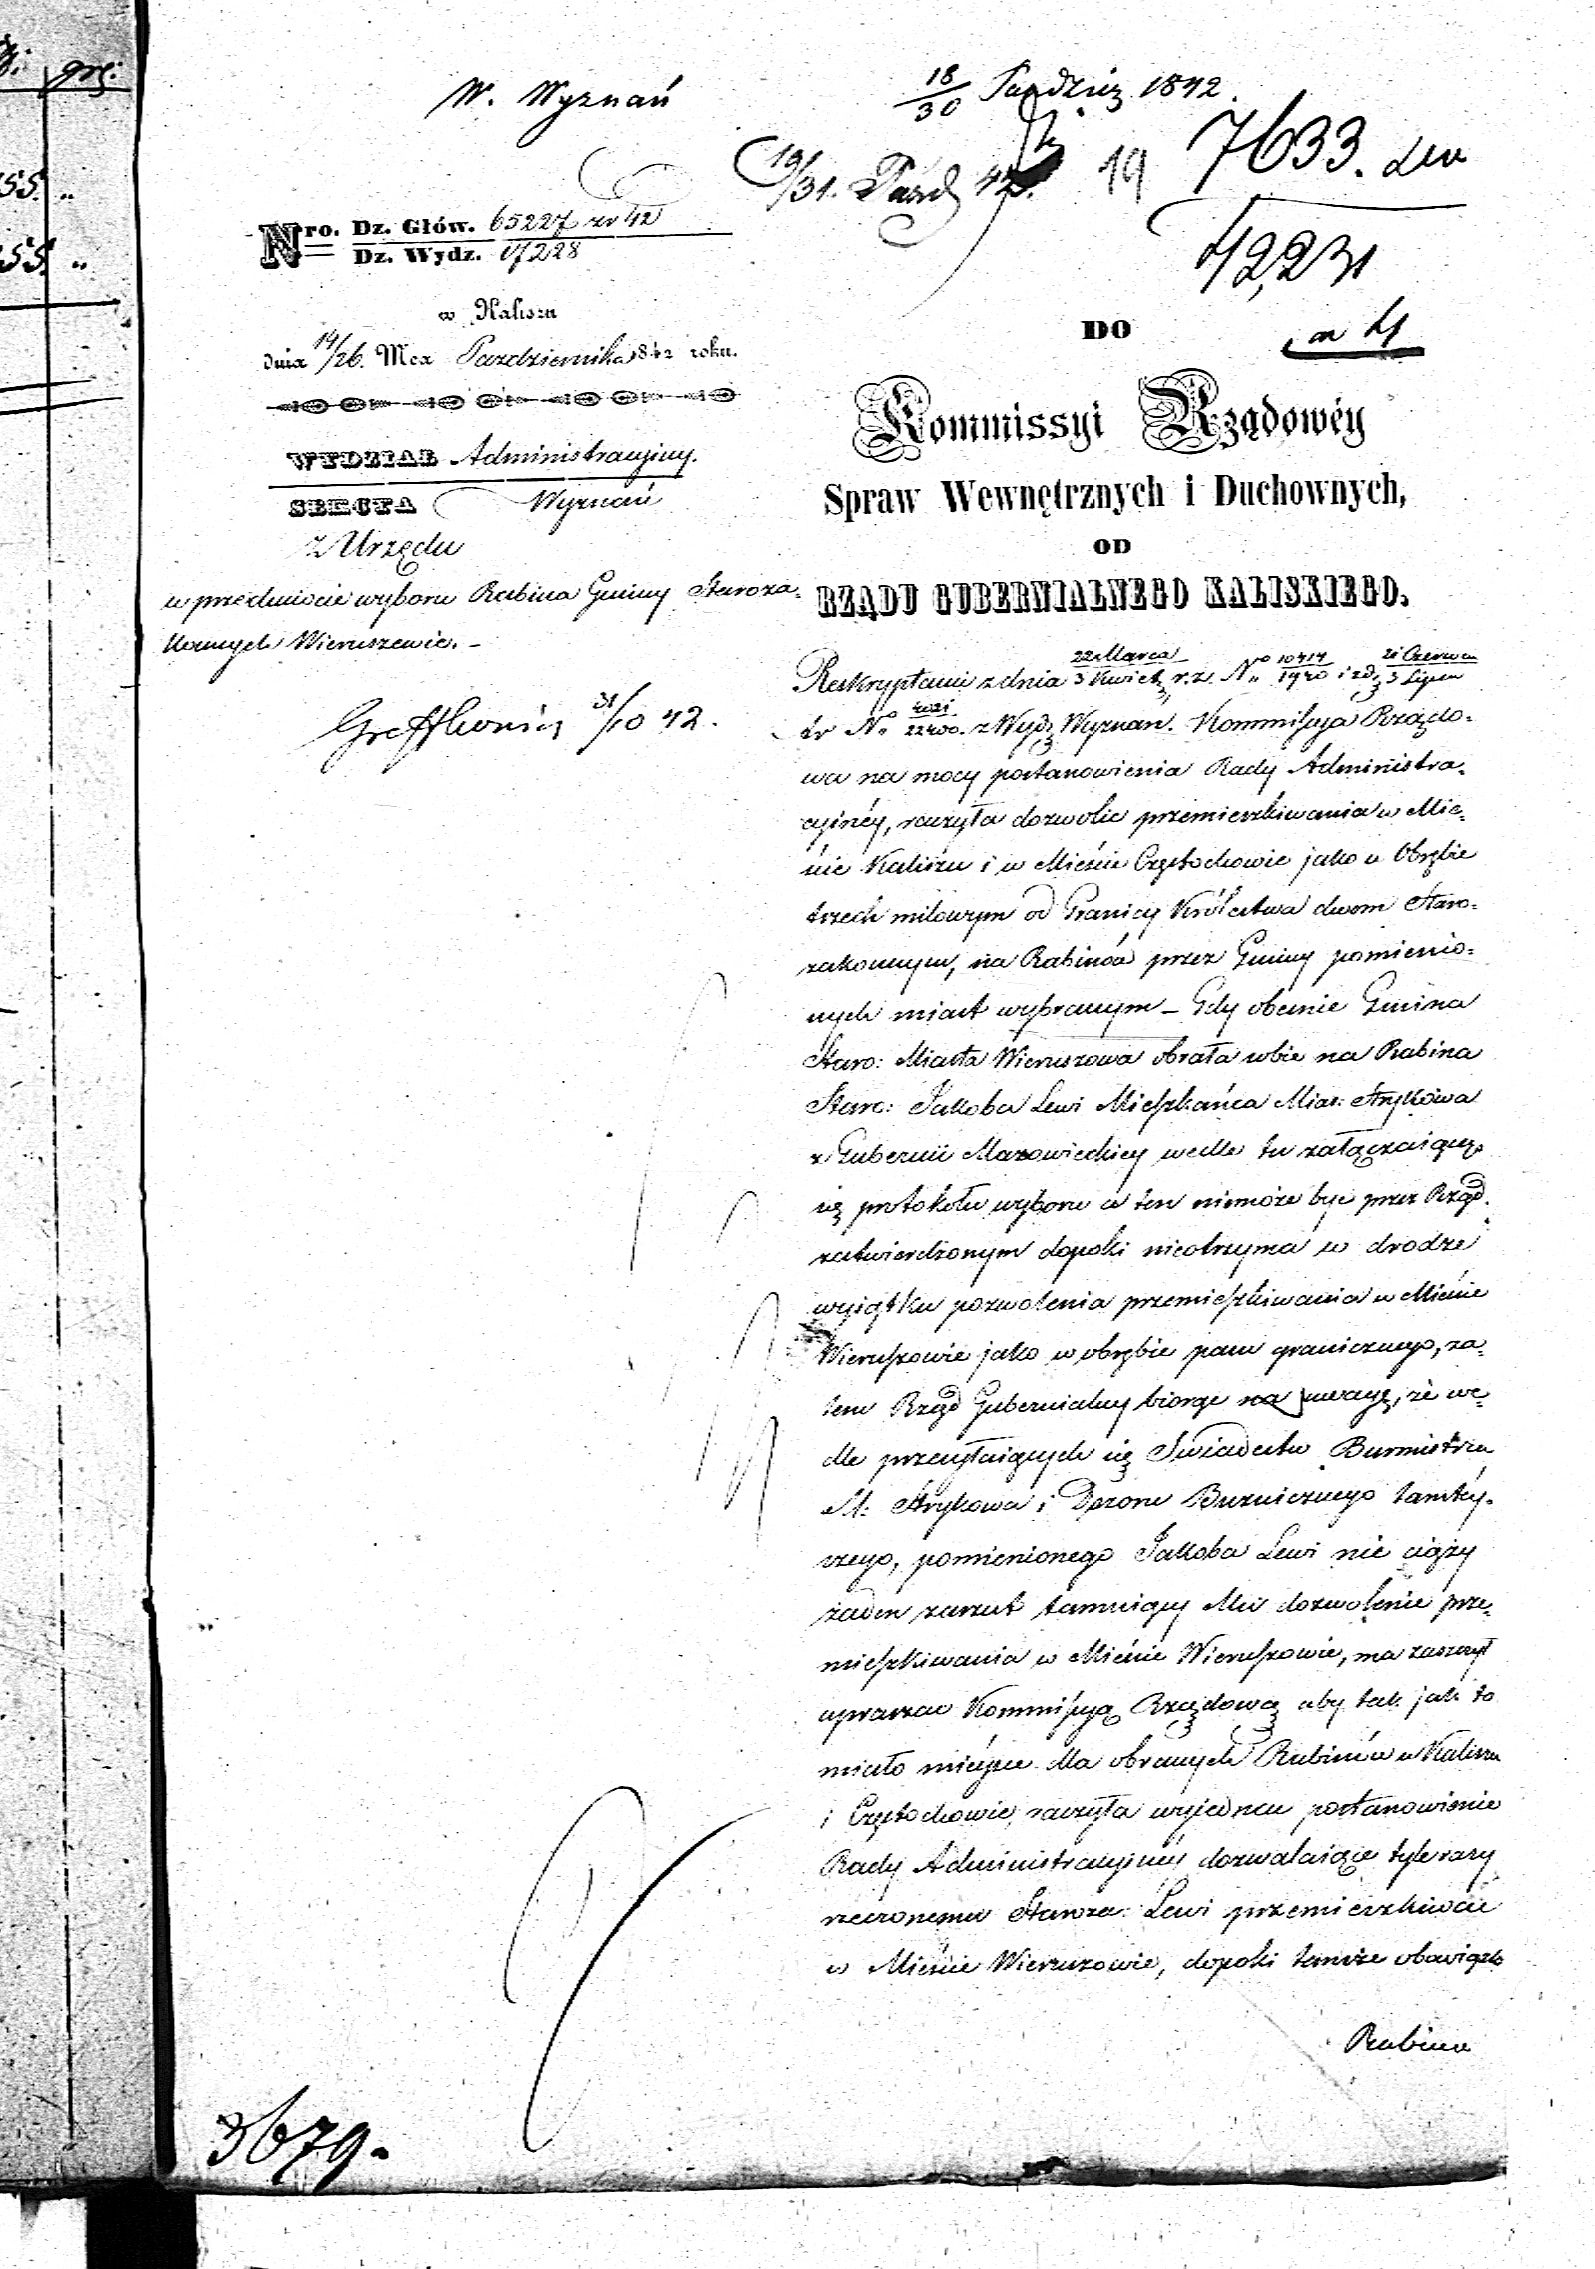 W. Wyznań
18/30 Paździer 1842.
19/31. Paźd 42. 19 7633.
12,231
Nro. Dz. Głów. 65227 zr 42
Dz. Wydz. 17228
w Kaliszu
dnia 14/26. Mca Pazdziernika 1842 roku.
WYDZIAŁ Administracyiny.
SEKCYA Wyznań
z Urzędu
w przedmiocie wyboru Rabina Gminy Staroza-
konnych Wieruszewie. –
31/10 42.
DO
Kommissyi Rządowéy
Spraw Wewnętrznych i Duchownych,
OD
RZĄDU GUBERNIALNEGO KALISKIEGO.
Reskryptami z dnia 22 Marca/3 Kwiet r.z. No 10414/1920 i z d 21 Czerwca/3 Lipca
tr No 4021/22400. z Wydz Wyznań. Kommissyja Rządo-
wa na mocy postanowienia Rady Administra-
cyinéy, raczyła dozwolić przemieszkiwania w Mie-
ście Kaliszu i w Mieście Częstochowie jako w Obrębie
trzech milowym od Granicy Królestwa dwom Staro-
zakonnym, na Rabinów przez Gminy pomienio-
nych miast wybranym – Gdy obecnie Gmina
Staro: Miasta Wieruszowa obrała sobie na Rabina
Staro: Jakoba Lewi Mieszkańca Mias: Strykowa
z Gubernii Mazowieckiey wedle tu załączaiące-
się protokołu wyboru a ten niemoże być przez Rząd
zatwierdzonym dopoki nieotrzyma w drodze
wyiątku pozwolenia przemieszkiwania w Mieście
Wieruszowie jako w obrębie pasu granicznego, za-
tem Rząd Gubernialny biorąc na uwagę, że we-
dle przesyłaiących się Świadectw Burmistrza
M: Strykowa i Dozoru Bużniczego tamtéy-
szego, pomienionego Jakoba Lewi nie ciąży
żaden zarzut tamuiący Mu dozwolenie prze-
mieszkiwania w Mieście Wieruszowie, ma zaszczyt
upraszac Kommissyą Rządową aby tak jak to
miało mieysce dla obranych Rabinów w Kaliszu
i Częstochowie, raczyła wyjednać postanowienie
Rady Administracyinéy dozwalaiące tyle razy
rzeczonemu Staroza: Lewi przemieszkiwać
w Mieście Wieruszowie, dopoki tamże obowiązk
Rabina
3679.